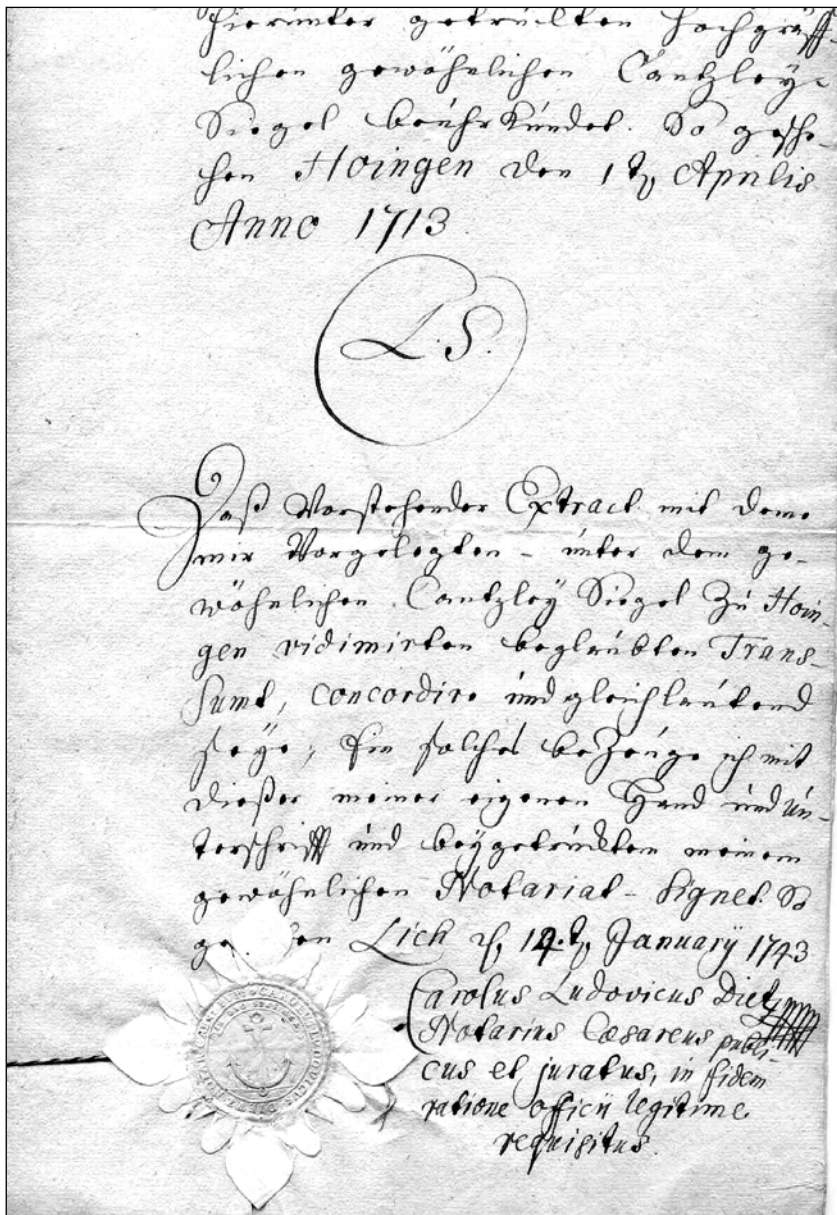 hierunter getruckten Hochgräff-
lichen gewöhnlichen Cantzley-
Siegel beuhrkundet. So gesche-
hen Hoingen den 1t. Aprilis
Anno 1713
L.S.
Daß Vorstehender Extract mit deme
mir Vorgelegten - unter dem ge-
wöhnlichen Cantzley Siegel zu Hoin-
gen vidimirten beglaubten Trans-
sumt, concordire und gleichlautend
seye, Ein solches beZeuge ich mit
dießer meiner eigenen Hand und Un-
terschrifft und beygetrucktem meinem
gewöhnlichen Notariat-Signet. So
Lich d. 14.t. January 1743
Carolus Ludovicus Dietz
Notarius Cæsareus publi-
cus et juratus, in fidem
ratione officii legitime
requisitus.